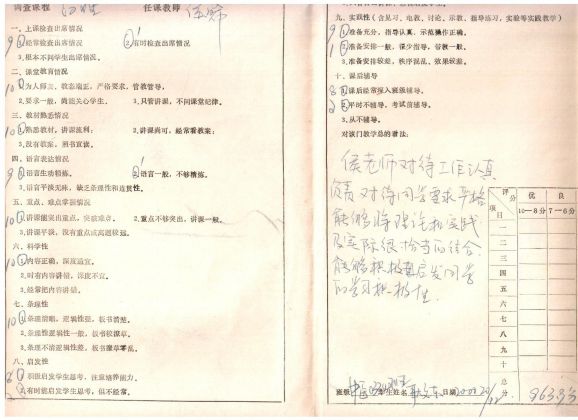 调查课程
任课教师
一、上课检查出席情况
9 1.经常检查出席情况 2.有时检查出席情况
3.根本不问学生出席情况
二、课堂教育情况
10 1.为人师表，教态端正，严格要求，管教管导。
2.要求一般，尚能关心学生。 3.只管讲课，不问课堂纪律。
三、教材熟悉情况
10 1.熟悉教材，讲课流利； 2.讲课尚可，经常看教案；
3.没有教案，照书宣读。
四、语言表达情况
9 1.语言生动精炼。 2.语言一般，不够精炼。
3.语言平淡无味，缺乏条理性和连贯性。
五、重点、难点掌握情况
10 1.讲课能突出重点，突破难点。 2.重点不够突出，讲课一般。
3.讲课平淡，没有重点或离题较远。
六、科学性
10 1.内容正确，深度适宜。
2.时有内容讲错，深度不宜。
3.经常把内容讲错。
七、条理性
10 1.条理清晰，逻辑性强，板书清楚。
2.条理性逻辑性一般，板书较潦草。
3.条理不清逻辑性差，板书潦草零乱。
八、启发性
8 1.积极启发学生思考，注意培养能力。
2 2.有时能启发学生思考，但不经常。
九、实践性（含见习、电教、讨论、示教、指导练习，实验等实践教学）
9 1.准备充分，指导认真，示范操作正确。
1 2.准备安排一般，很少指导，带教一般。
3.准备安排较差，秩序混乱、效果较差。
十、课后辅导
8 1.课后经常深入班级辅导。
2 2.平时不辅导，考试前辅导。
3.从不辅导。
对该门教学总的看法：
侯老师对待工作认真
负责，对待同学要求严格
能够将理论和实践
及实际很恰当的结合
能够积极启发同学
的学习积极性。
评分 优 良
项目 10—8分 7—6分
一
二
三
四
五
六
七
八
九
十
总分 963分
班级 学生姓名 日期